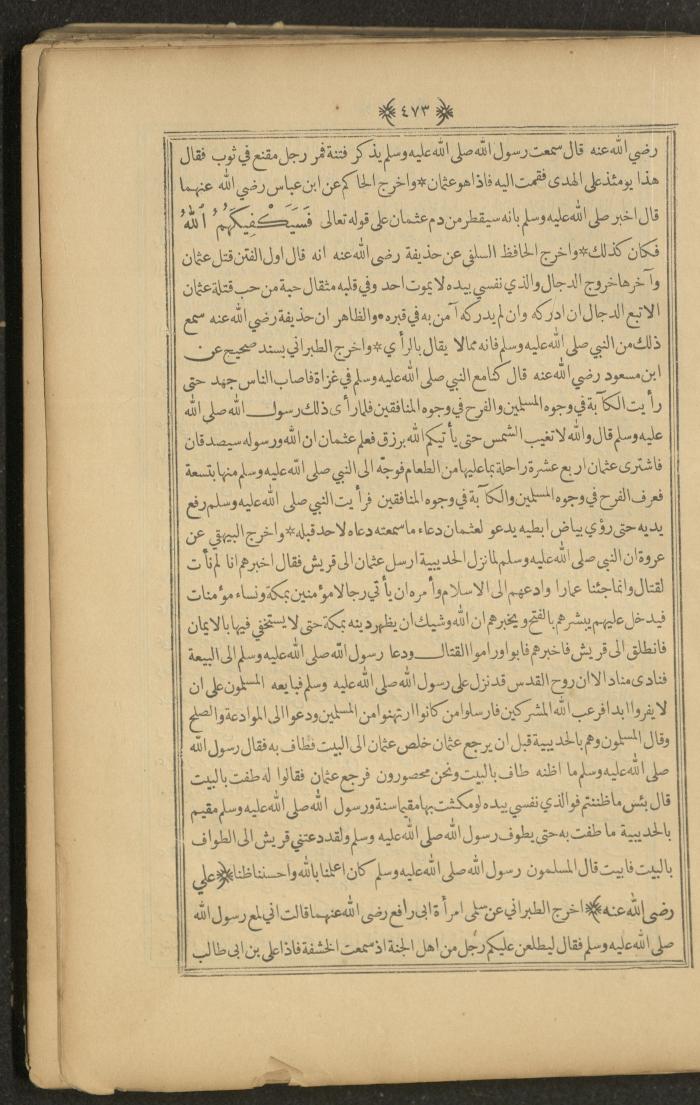 ﴿٤٧٣﴾
رضي الله عنه قال سمعت رسول الله صلى الله عليه وسلم يذكر فتنة فمر رجل مقنع في ثوب فقال
هذا يومئذ على الهدى فقمت اليه فاذا هو عثمان * واخرج الحاكم عن ابن عباس رضي الله عنهما
قال اخبر صلى الله عليه وسلم بانه سيقطر من دم عثمان على قوله تعالى فَسَيَكْفِيكَهُمُ ٱللهُ
فكان كذلك * واخرج الحافظ السلفي عن حذيفة رضي الله عنه انه قال اول الفتن قتل عثمان
وآخرها خروج الدجال والذي نفسي بيده لا يموت احد وفي قلبه مثقال حبة من حب قتلة عثمان
الا تبع الدجال ان ادركه وان لم يدركه آمن به في قبره * والظاهر ان حذيفة رضي الله عنه سمع
ذلك من النبي صلى الله عليه وسلم فانه مما لا يقال بالرأي * واخرج الطبراني بسند صحيح عن
ابن مسعود رضي الله عنه قال كنا مع النبي صلى الله عليه وسلم في غزاة فاصاب الناس جهد حتى
رأيت الكآبة في وجوه المسلمين والفرح في وجوه المنافقين فلما رأى ذلك رسول الله صلى الله
عليه وسلم قال والله لا تغيب الشمس حتى يأتيكم الله برزق فعلم عثمان ان الله ورسوله سيصدقان
فاشترى عثمان اربع عشرة راحلة بما عليها من الطعام فوجّه الى النبي صلى الله عليه وسلم منها بتسعة
فعرف الفرح في وجوه المسلمين والكآبة في وجوه المنافقين فرأيت النبي صلى الله عليه وسلم رفع
يديه حتى رؤي بياض ابطيه يدعو لعثمان دعاء ما سمعته دعاه لاحد قبله * واخرج البيهقي عن
عروة ان النبي صلى الله عليه وسلم لما نزل الحديبية ارسل عثمان الى قريش فقال اخبرهم انا لم نأت
لقتال وانما جئنا عمارا وادعهم الى الاسلام وأمره ان يأتي رجالا مؤمنين بمكة ونساء مؤمنات
فيدخل عليهم يبشرهم بالفتح ويخبرهم ان الله وشيك ان يظهر دينه بمكة حتى لا يستخفي فيها بالايمان
فانطلق الى قريش فاخبرهم فابوا وراموا القتال ودعا رسول الله صلى الله عليه وسلم الى البيعة
فنادى مناد الا ان روح القدس قد نزل على رسول الله صلى الله عليه وسلم فبايعه المسلمون على ان
لا يفروا ابدا فرعب الله المشركين فارسلوا من كانوا ارتهنوا من المسلمين ودعوا الى الموادعة والصلح
وقال المسلمون وهم بالحديبية قبل ان يرجع عثمان خلص عثمان الى البيت فطاف به فقال رسول الله
صلى الله عليه وسلم ما اظنه طاف بالبيت ونحن محصورون فرجع عثمان فقالوا له طفت بالبيت
قال بئس ما ظننتم فوالذي نفسي بيده لو مكثت بها مقيما سنة ورسول الله صلى الله عليه وسلم مقيم
بالحديبية ما طفت به حتى يطوف رسول الله صلى الله عليه وسلم ولقد دعتني قريش الى الطواف
بالبيت فابيت قال المسلمون رسول الله صلى الله عليه وسلم كان اعلمنا بالله واحسننا ظنا ﴿ علي
رضي الله عنه ﴾ اخرج الطبراني عن سلمى امرأة ابي رافع رضي الله عنهما قالت اني لمع رسول الله
صلى الله عليه وسلم فقال ليطلعن عليكم رجل من اهل الجنة اذ سمعت الخشفة فاذا علي بن ابي طالب